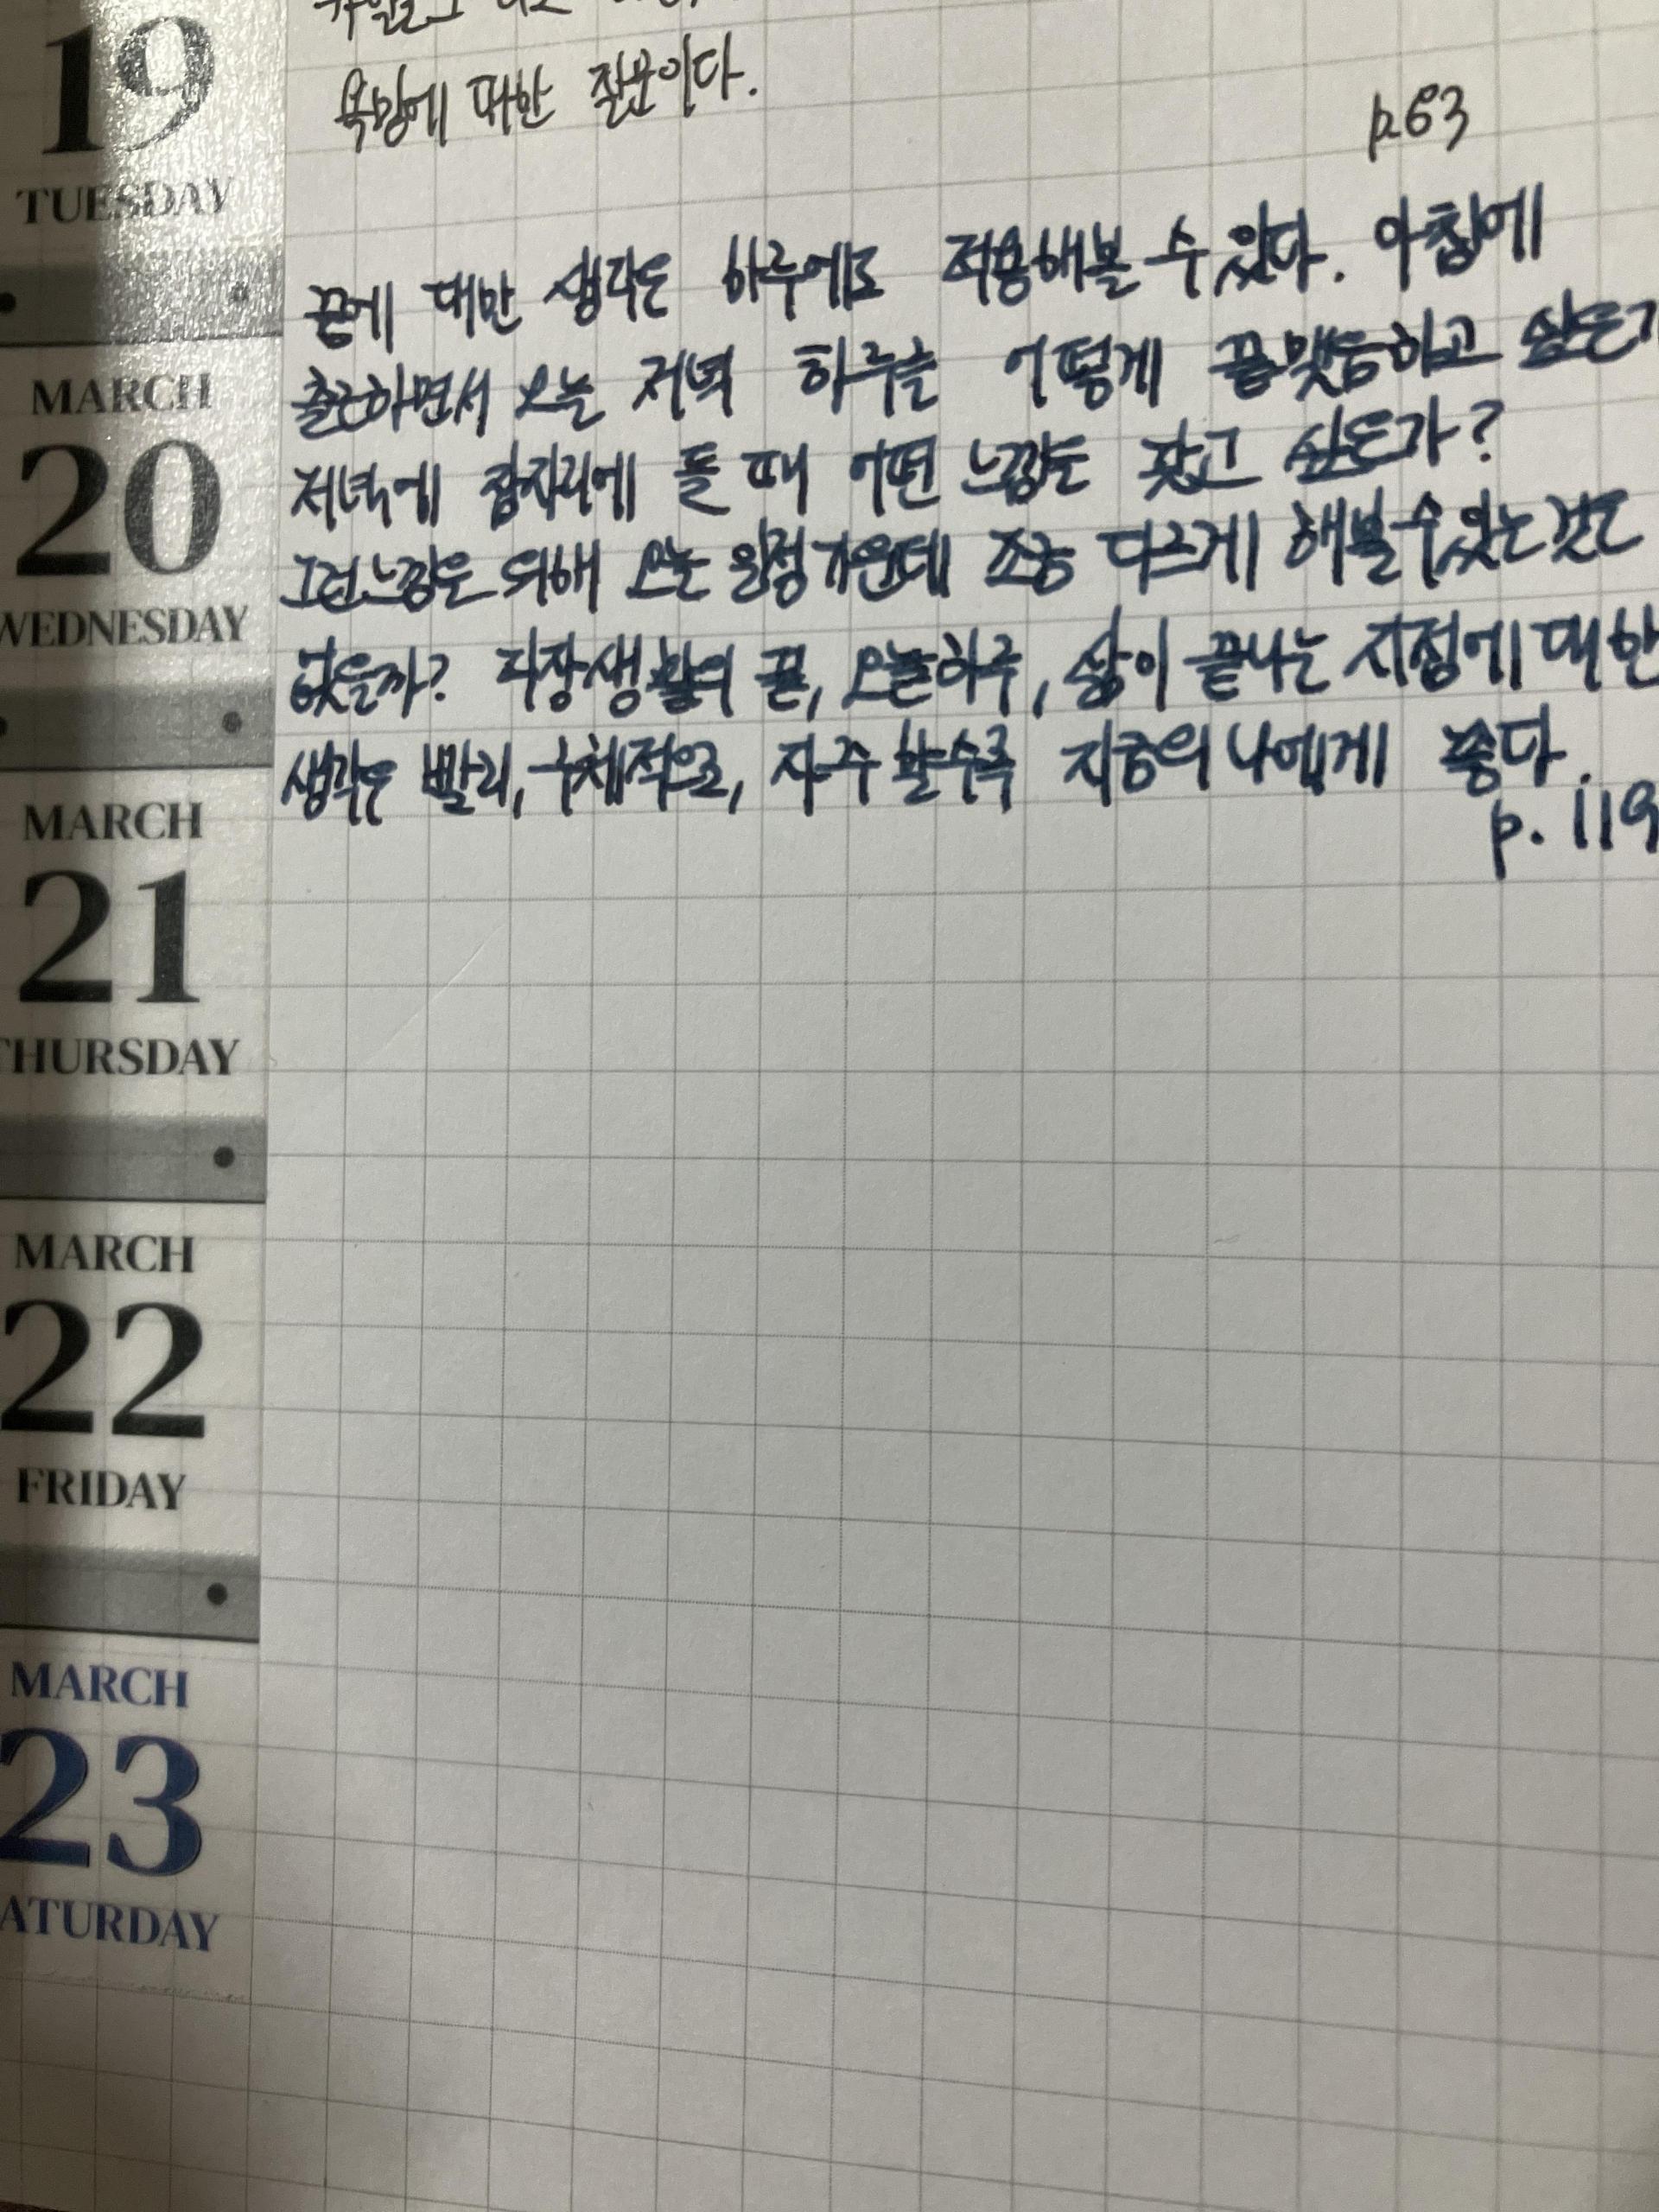 19
TUESDAY
MARCH
20
WEDNESDAY
MARCH
21
THURSDAY
MARCH
22
FRIDAY
MARCH
23
ATURDAY
욕망에 대한 질문이다.
p.63
끝에 대한 생각은 하루에도 적용해볼 수 있다. 아침에
출근하면서 오늘 저녁 하루를 어떻게 끝맺음하고 싶은가
저녁에 잠자리에 들 때 어떤 느낌을 갖고 싶은가?
그런 느낌을 위해 오늘 일정 가운데 조금 다르게 해볼 수 있는 것은
없을까? 직장생활의 끝, 오늘 하루, 삶이 끝나는 지점에 대한
생각은 빨리, 구체적으로, 자주 할수록 지금의 나에게 좋다.
p. 119